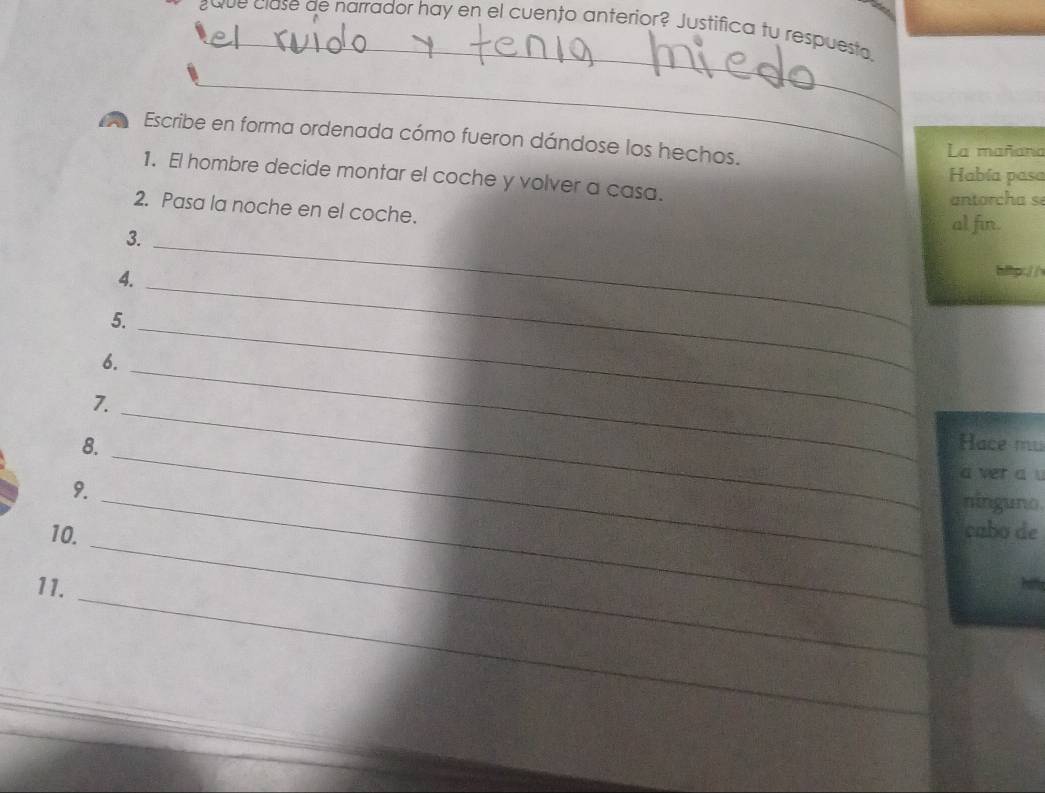 ¿Qué clase de narrador hay en el cuento anterior? Justifica tu respuesta.
el ruido y tenia miedo
Escribe en forma ordenada cómo fueron dándose los hechos.
1. El hombre decide montar el coche y volver a casa.
2. Pasa la noche en el coche.
3.
4.
5.
6.
7.
8.
9.
10.
11.
La mañana
Había pasa
antorcha se
al fin.
http://
Hace mu
a ver a u
ninguno.
cabo de